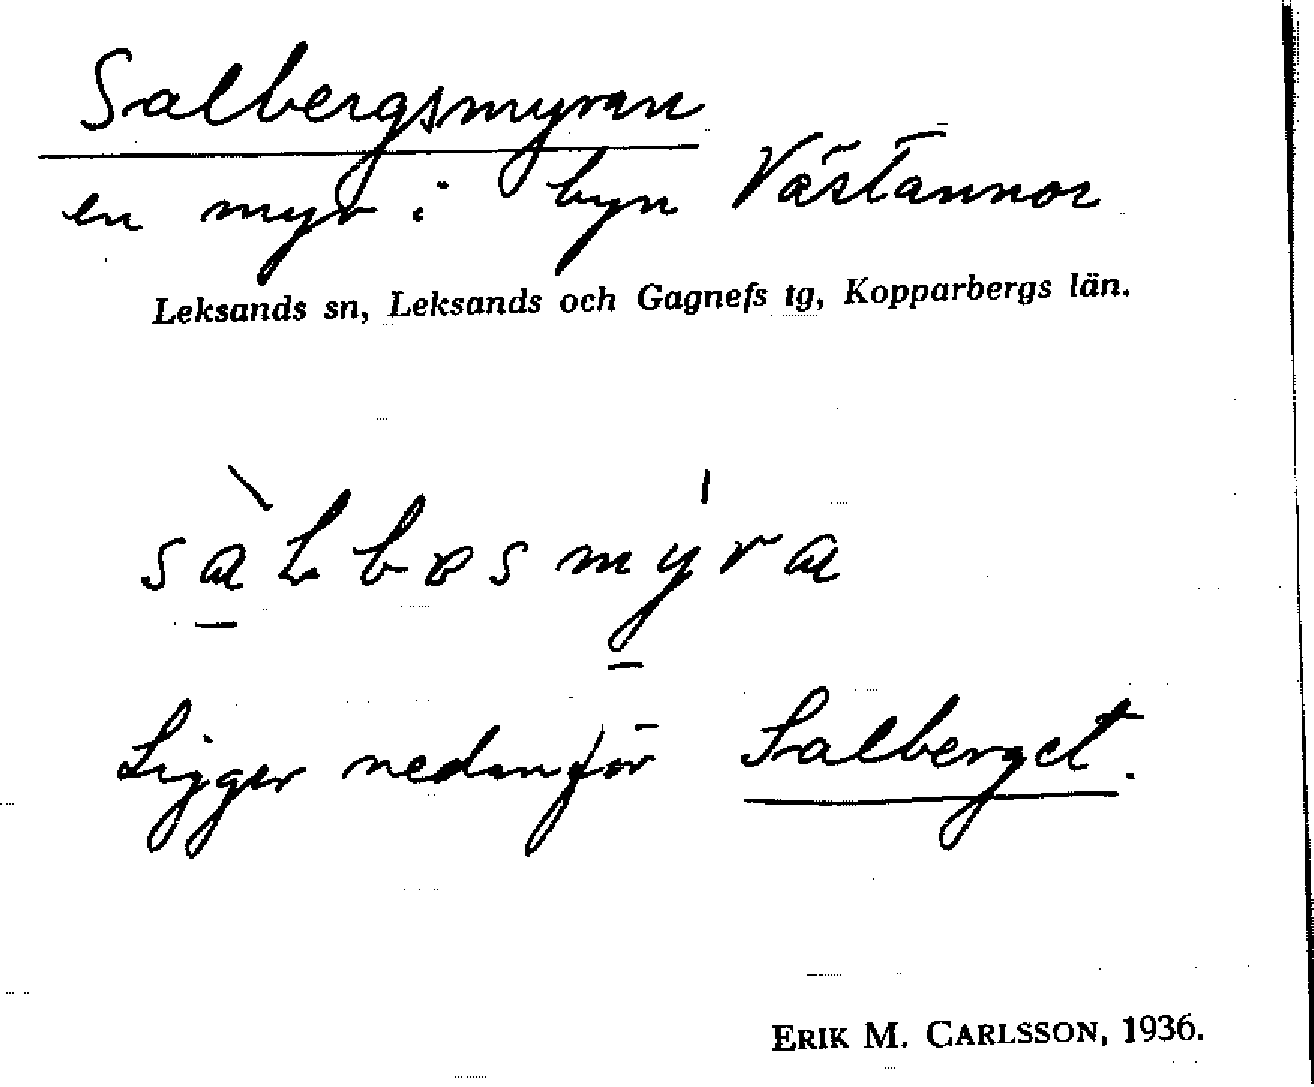 Salbergsmyran
en myr i byn Västannor
Leksands sn, Leksands och Gagnefs tg, Kopparbergs län.
Ligger nedanför Salberget.
ERIK M. CARLSSON, 1936.